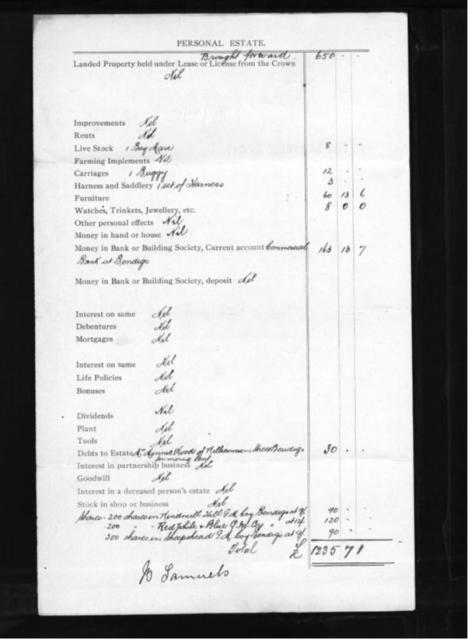 PERSONAL ESTATE.
Brought forward 650 . .
Landed Property held under Lease or License from the Crown
Nil
Improvements Nil
Rents Nil
Live Stock 1 Bay Mare 8 . .
Farming Implements Nil
Carriages 1 Buggy 12 . .
Harness and Saddlery 1 set of Harness 3 . .
Furniture 60 13 6
Watches, Trinkets, Jewellery, etc. 8 0 0
Other personal effects Nil
Money in hand or house Nil
Money in Bank or Building Society, Current account Commercial 163 13 7
Bank at Bendigo
Money in Bank or Building Society, deposit Nil
Interest on same Nil
Debentures Nil
Mortgages Nil
Interest on same Nil
Life Policies Nil
Bonuses Nil
Dividends Nil
Plant Nil
Tools Nil
Debts to Estate Hood of Street Bendigo 30 . .
Interest in partnership business Nil
Goodwill Nil
Interest in a deceased person's estate Nil
Stock in shop or business Nil
Shares - 200 shares in Windmill Hill G.M. Coy Bendigo at 9/- 90 . .
200 " Red White & Blue G.M. Coy " at 12/- 120 . .
200 shares in Sheepshead G.M. Coy Bendigo at 9/- 90 . .
Total £ 1235 7 1
Samuels